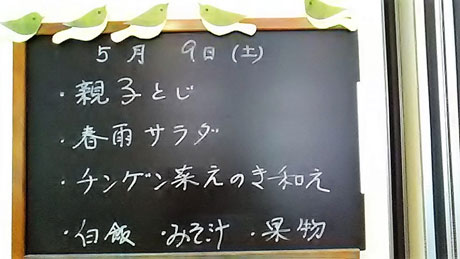 5月 9日(土)
・親子とじ
・春雨サラダ
・チンゲン菜えのき和え
・白飯 ・みそ汁 ・果物